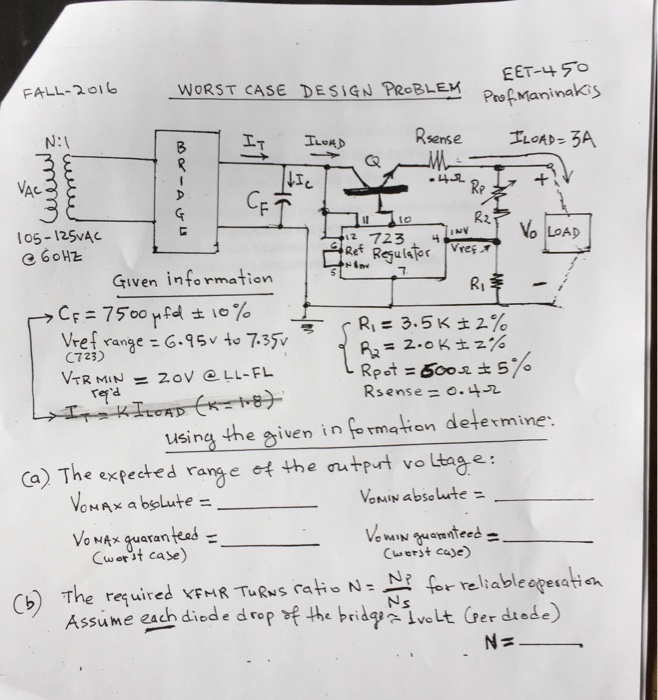 FALL-2016
WORST CASE DESIGN PROBLEM
EET-450
Prof. Maninakis
N:1
VAC
105-125VAC
@ 60HZ
BRIDGE
IT
ILOAD
↓Ic
CF
Q
Rsense
.4Ω
ILOAD = 3A
RP
R2
R1
+
Vo
LOAD
-
11
10
12
723
4
INV
6
Ref
Regulator
Vref
5
NInv
7
Given information
CF = 7500 μfd ± 10%
Vref range = 6.95v to 7.35v
(723)
VTR MIN = 20V @ LL-FL
req'd
IT = K ILOAD (K = 1.8)
R1 = 3.5K ± 2%
R2 = 2.0K ± 2%
Rpot = 500Ω ± 5%
Rsense = 0.4Ω
using the given information determine:
(a) The expected range of the output voltage:
VOMAX absolute =
VOMIN absolute =
VOMAX guaranteed =
(worst case)
VOMIN guaranteed =
(worst case)
(b) The required XFMR TURNS ratio N = NP/NS for reliable operation
Assume each diode drop of the bridge ≈ 1volt (per diode)
N =